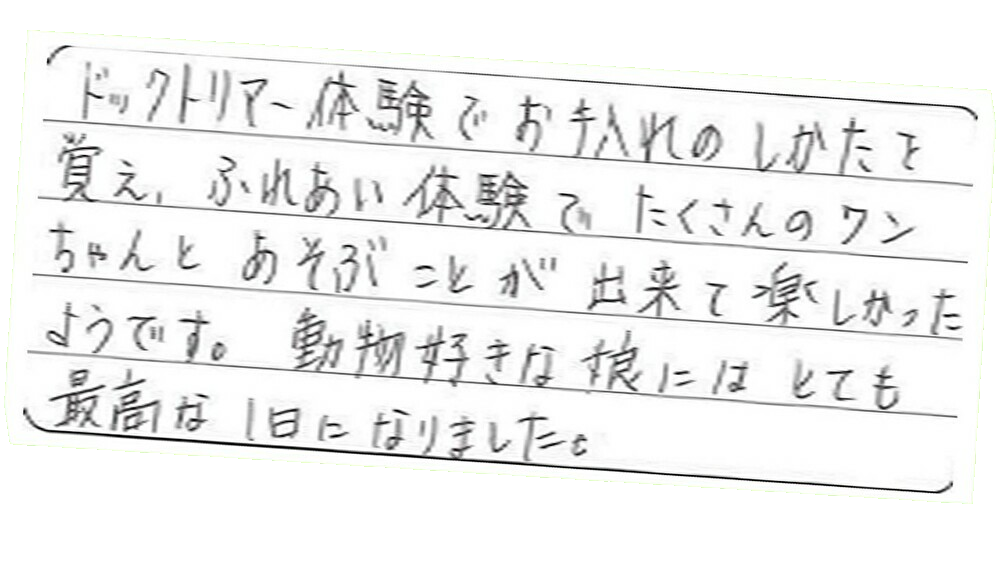 ドックトリマー体験でお手入れのしかたを
覚え、ふれあい体験でたくさんのワン
ちゃんとあそぶことが出来て楽しかった
ようです。動物好きな娘にはとても
最高な1日になりました。